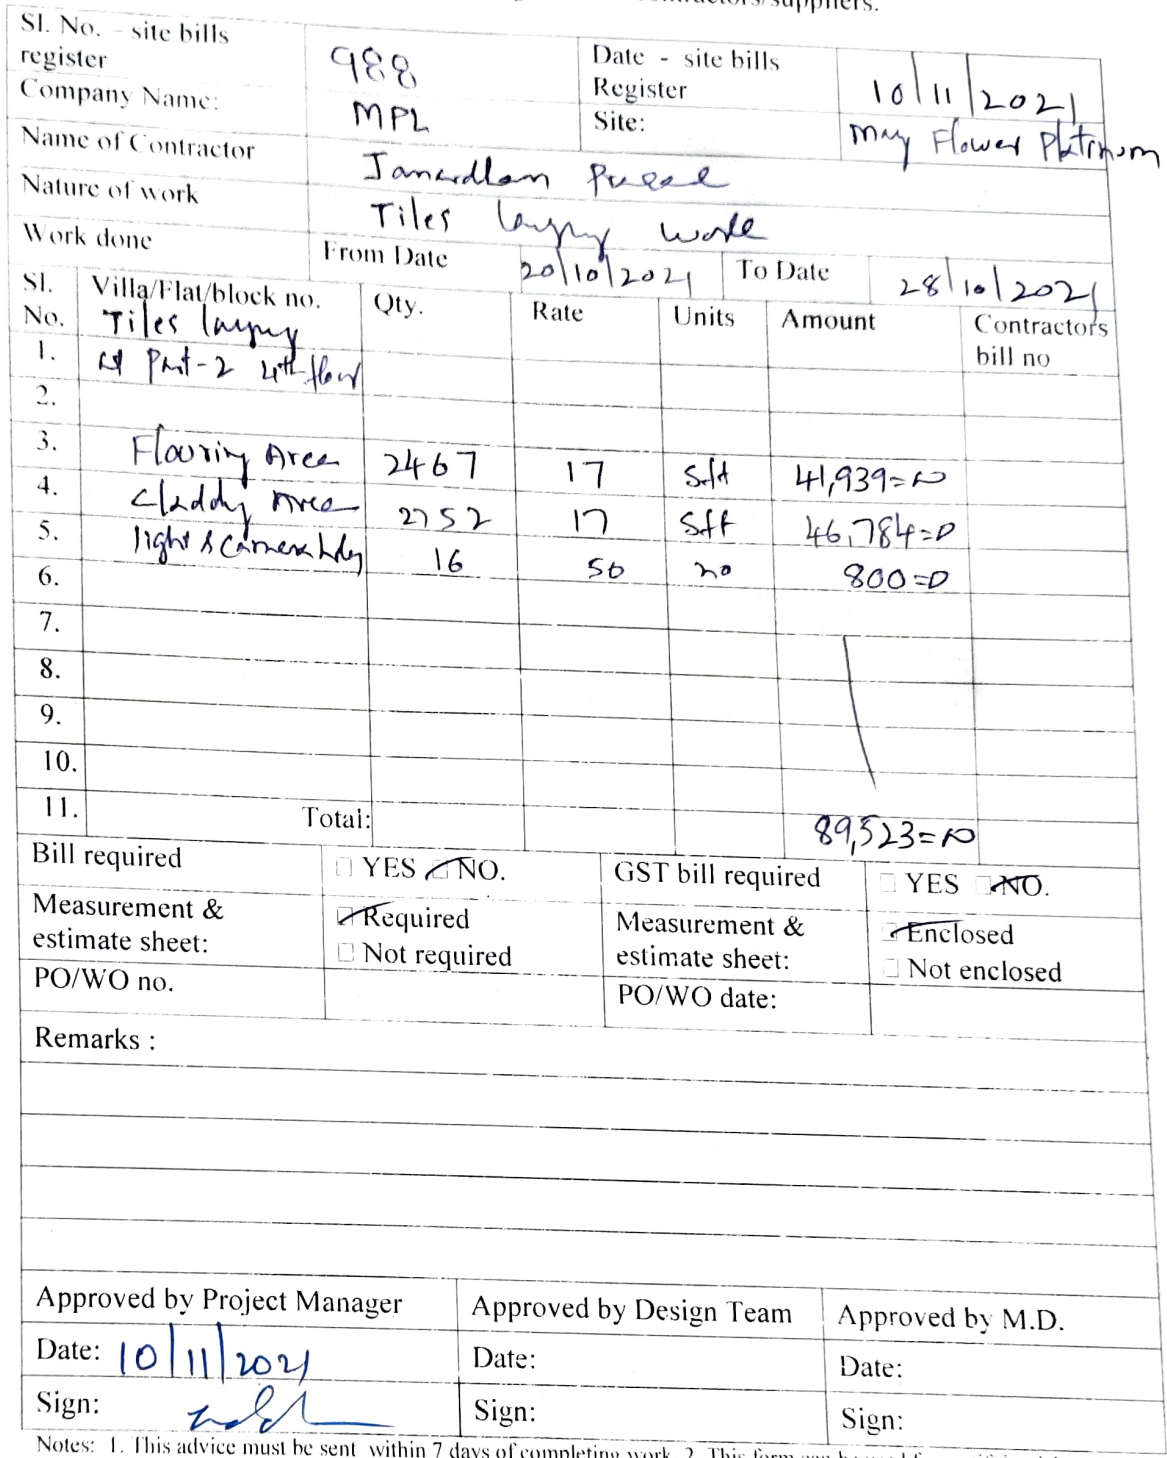 suppliers.
Sl. No. - site bills register 988 Date - site bills Register 10/11/2021
Company Name: MPL Site: May Flower Platinum
Name of Contractor Janardhan Prasad
Nature of work Tiles laying work
Work done From Date 20/10/2021 To Date 28/10/2021
Sl. No. Villa/Flat/block no. Qty. Rate Units Amount Contractors bill no
Tiles laying
1. at Part-2 4th floor
2.
3. Flooring Area 2467 17 Sft 41,939=00
4. Cladding Area 2752 17 Sft 46,784=00
5. light & Camera holes 16 50 no 800=00
6.
7.
8.
9.
10.
11. Total: 89,523=00
Bill required YES NO. GST bill required YES NO.
Measurement & estimate sheet: Required Not required Measurement & estimate sheet: Enclosed Not enclosed
PO/WO no. PO/WO date:
Remarks :
Approved by Project Manager Approved by Design Team Approved by M.D.
Date: 10/11/2021 Date: Date:
Sign: Sign: Sign:
Notes: 1. This advice must be sent within 7 days of completing work. 2. This form can be used